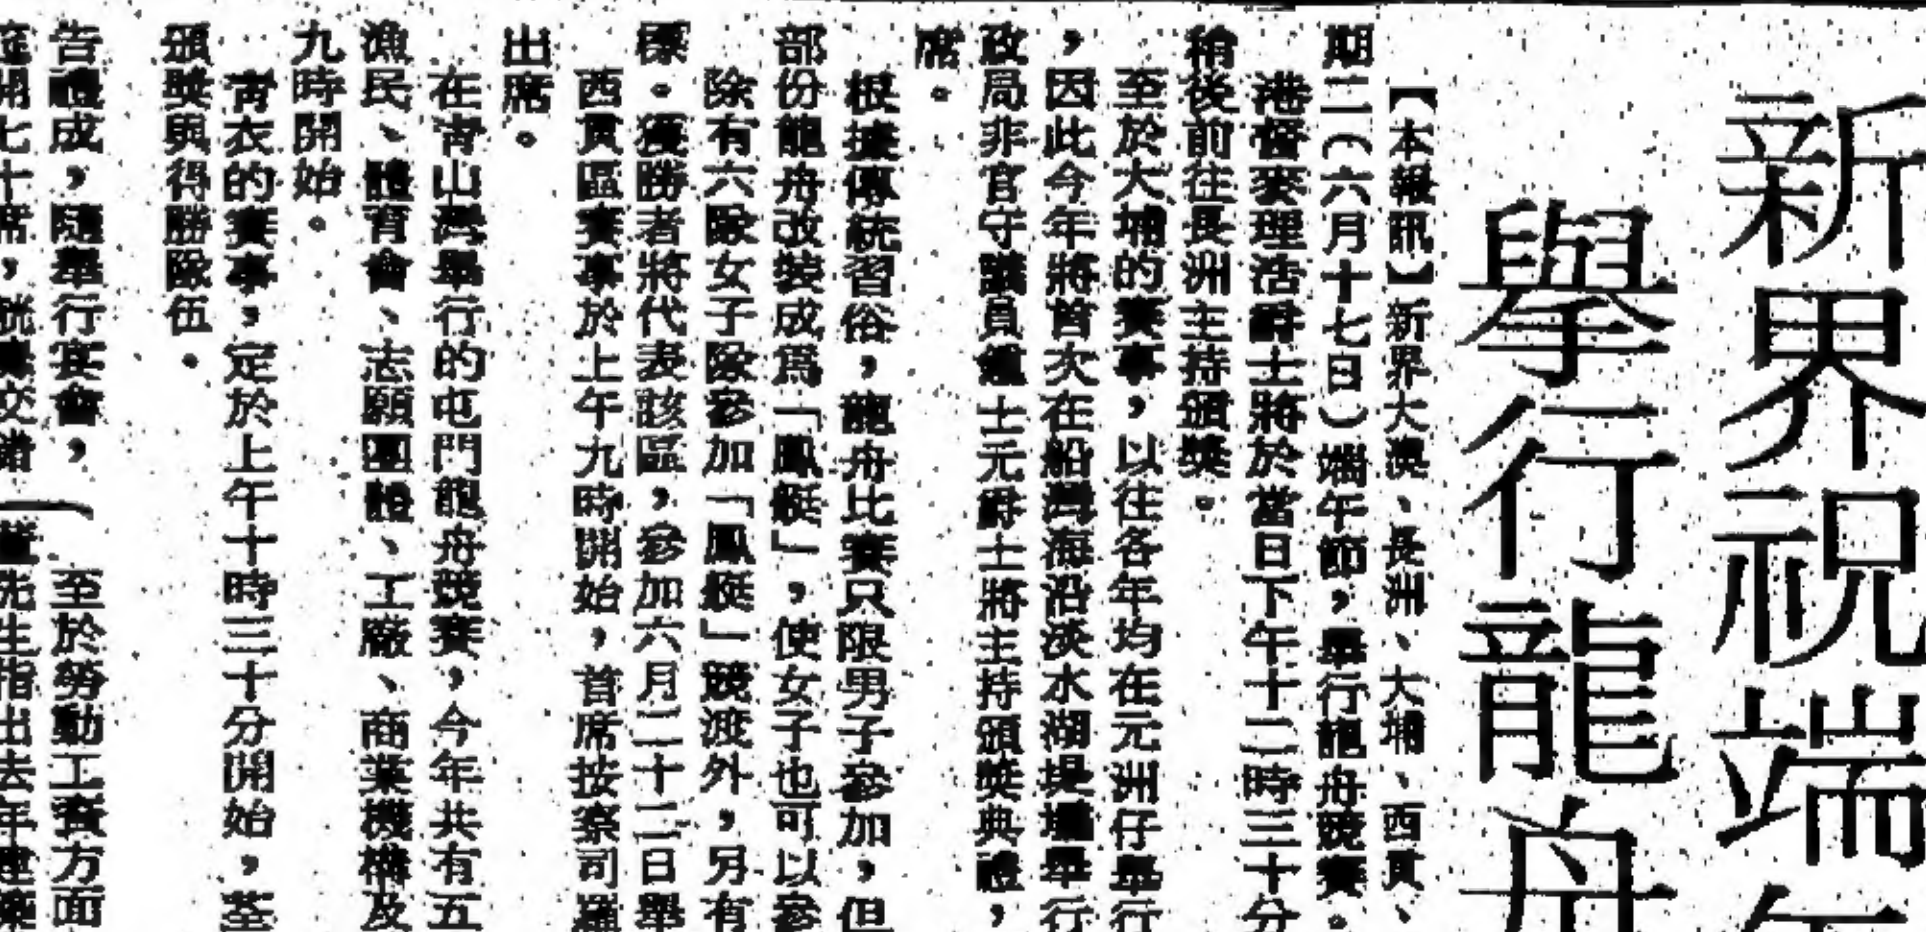 新界祝端午
舉行龍舟
【本報訊】新界大澳、長洲、大埔、西貢、
期二(六月十七日)端午節,舉行龍舟競賽。
港督麥理浩爵士將於當日下午十二時三十分
稍後前往長洲主持頒獎。
至於大埔的賽事,以往各年均在元洲仔舉行
,因此今年將首次在船灣海沿淡水湖堤壩舉行
政局非官守議員鍾士元爵士將主持頒獎典禮,
席。
根據傳統習俗,龍舟比賽只限男子參加,但
部份龍舟改裝成為「鳳艇」,使女子也可以參
除有六隊女子隊參加「鳳艇」競渡外,另有
標。獲勝者將代表該區,參加六月二十二日舉
西貢區賽事於上午九時開始,首席按察司羅
出席。
在青山灣舉行的屯門龍舟競賽,今年共有五
漁民、體育會、志願團體、工廠、商業機構及
九時開始。
青衣的賽事,定於上午十時三十分開始,荃
頒獎與得勝隊伍。
告禮成,隨舉行宴會, 至於勞動工資方面
開七十席,觥籌交錯 先生指出去年建築